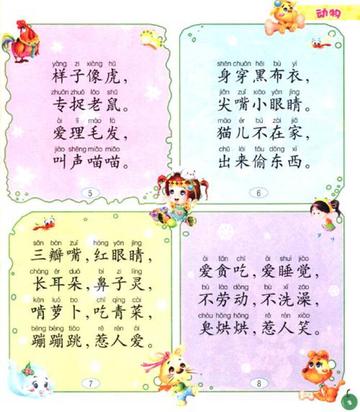 动物
yàng zi xiàng hǔ
样子像虎，
zhuān zhuō lǎo shǔ
专捉老鼠。
ài lǐ máo fà
爱理毛发，
jiào shēng miāo miāo
叫声喵喵。
5
shēn chuān hēi bù yī
身穿黑布衣，
jiān zuǐ xiǎo yǎn jīng
尖嘴小眼睛。
māo ér bú zài jiā
猫儿不在家，
chū lái tōu dōng xi
出来偷东西。
6
sān bàn zuǐ hóng yǎn jīng
三瓣嘴，红眼睛，
cháng ěr duo bí zi líng
长耳朵，鼻子灵，
kěn luó bo chī qīng cài
啃萝卜，吃青菜，
bèng bèng tiào rě rén ài
蹦蹦跳，惹人爱。
7
ài tān chī ài shuì jiào
爱贪吃，爱睡觉，
bù láo dòng bù xǐ zǎo
不劳动，不洗澡，
chòu hōng hōng rě rén xiào
臭烘烘，惹人笑。
8